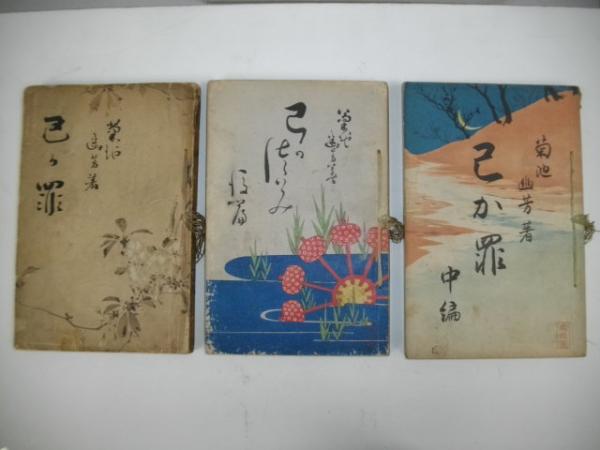 己が罪
菊池
幽芳著
己が罪
菊池
幽芳著
後篇
己か罪
菊池
幽芳著
中編